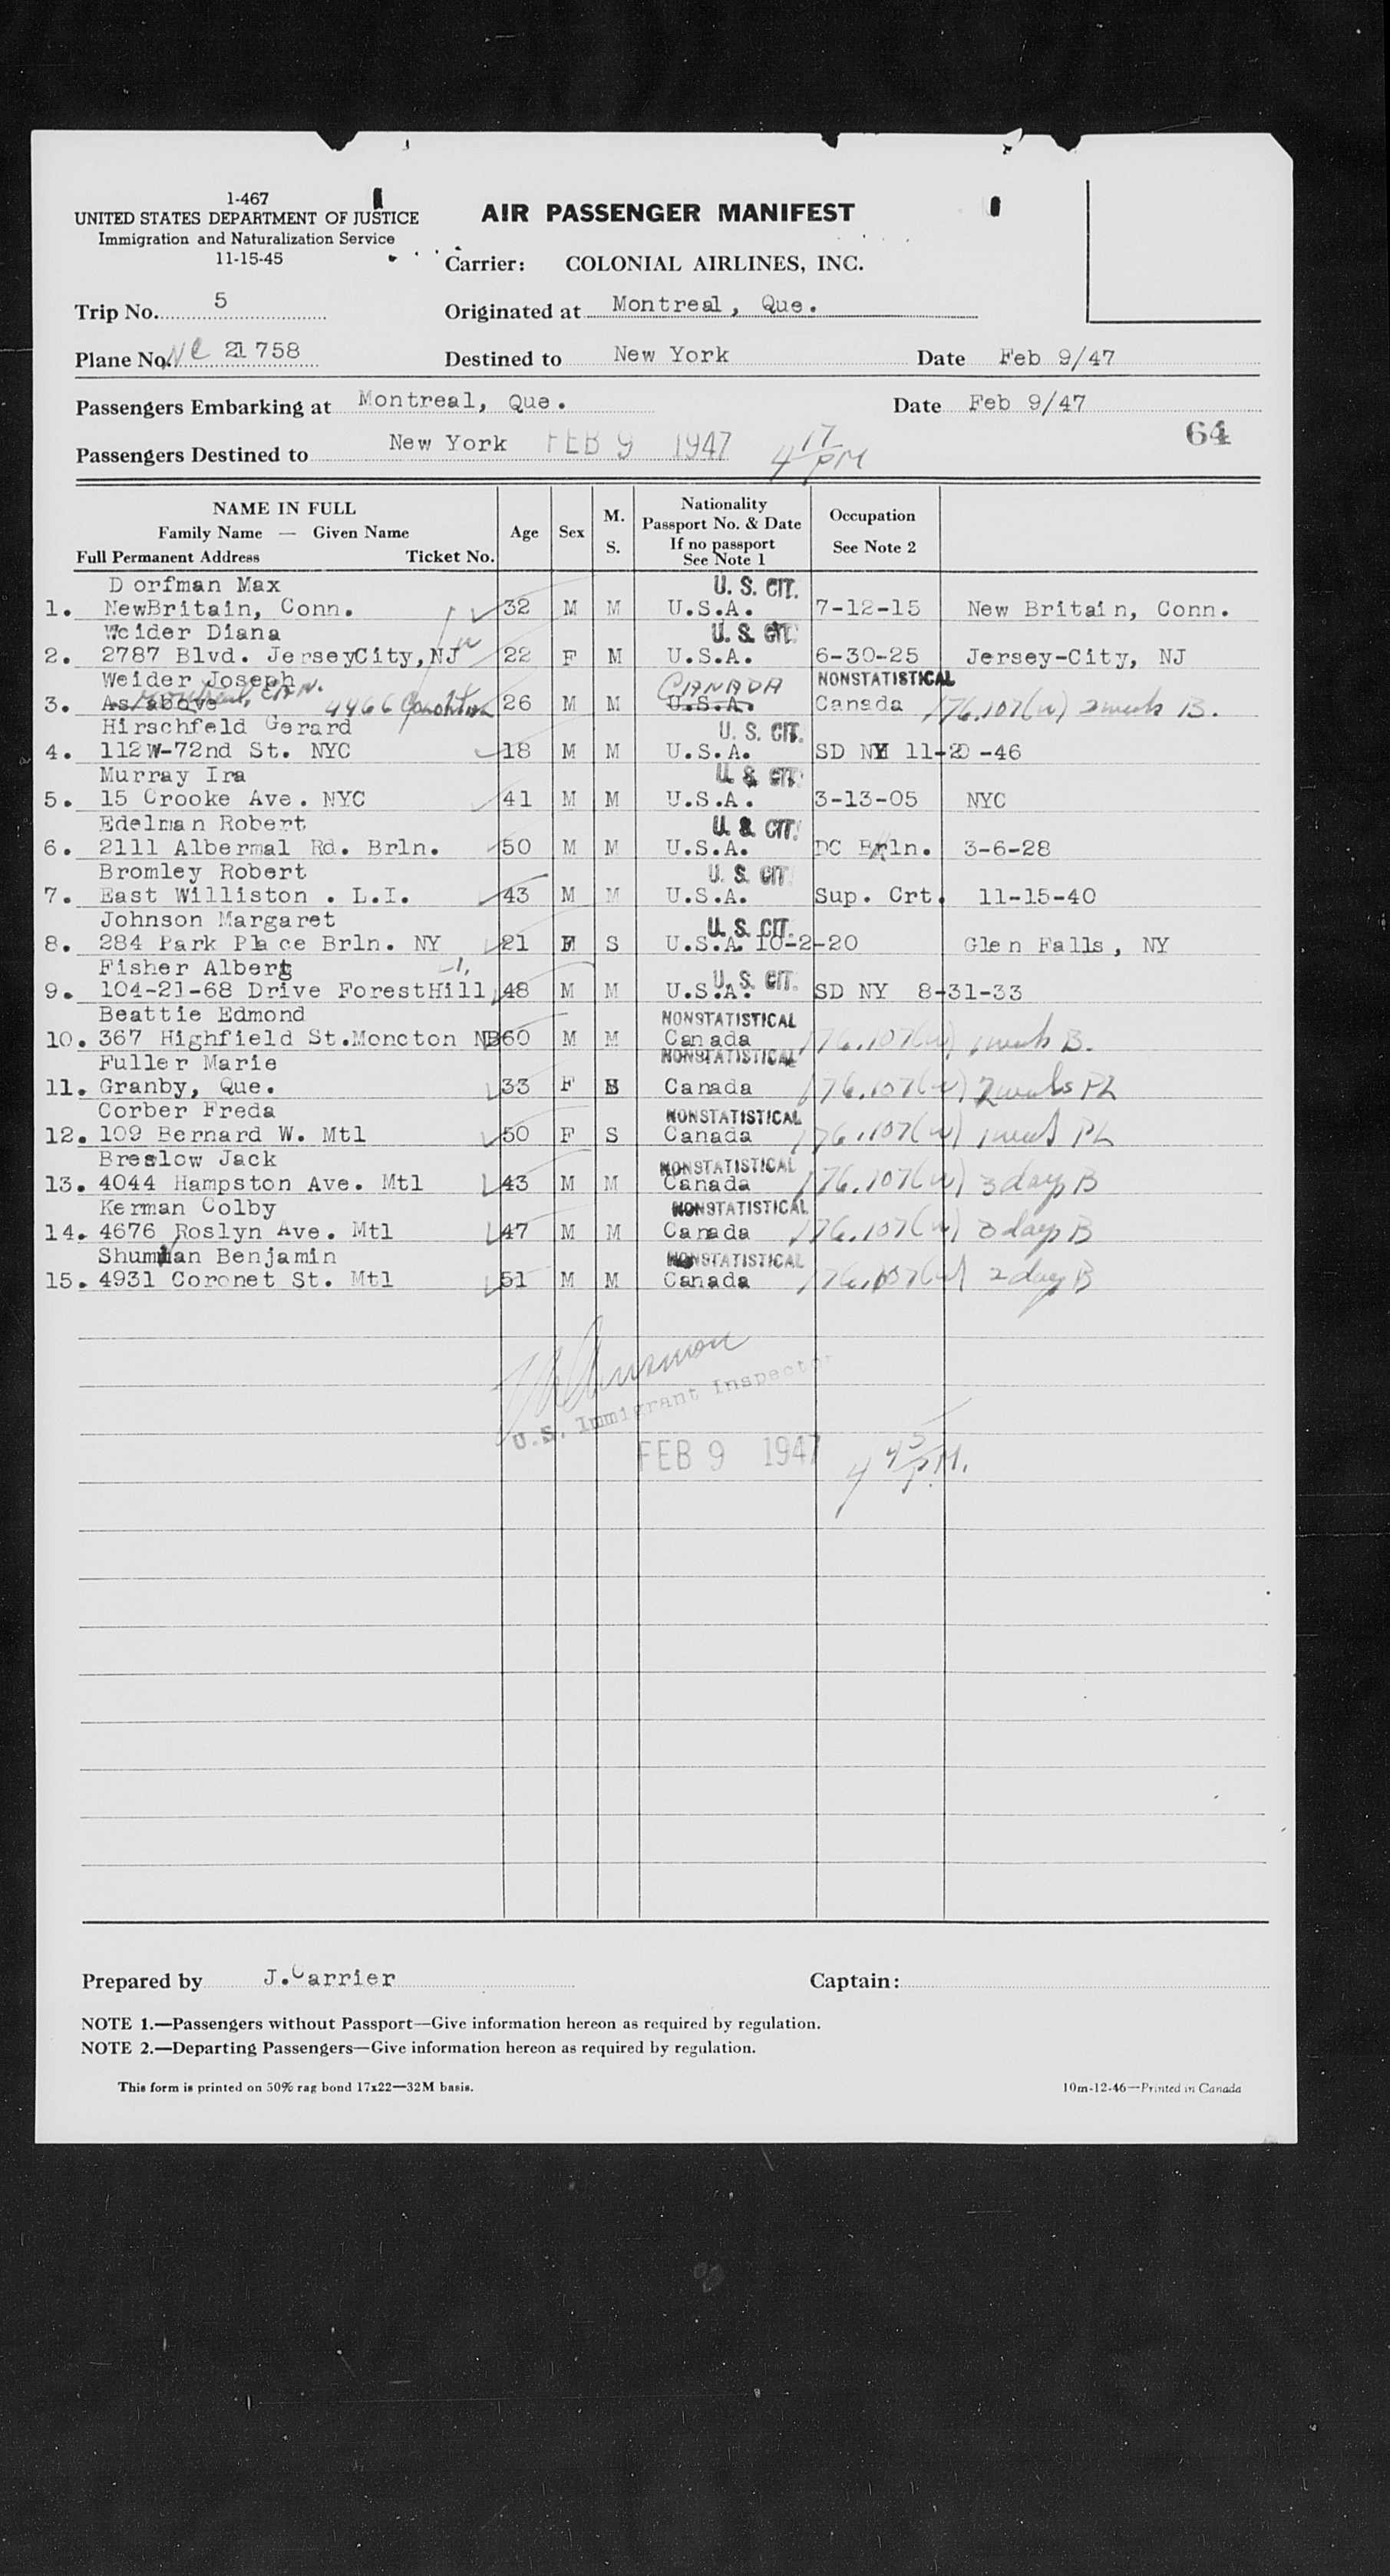 1-467
UNITED STATES DEPARTMENT OF JUSTICE
Immigration and Naturalization Service
11-15-45
AIR PASSENGER MANIFEST
Carrier: COLONIAL AIRLINES, INC.
Trip No. 5
Originated at Montreal, Que.
Plane No. NC 21758
Destined to New York Date Feb 9/47
Passengers Embarking at Montreal, Que. Date Feb 9/47
64
Passengers Destined to New York FEB 9 1947 4 17 PM
NAME IN FULL
Family Name — Given Name
Full Permanent Address Ticket No.
Age Sex M. S.
Nationality
Passport No. & Date
If no passport
See Note 1
Occupation
See Note 2
Dorfman Max U. S. CIT.
1. NewBritain, Conn. 32 M M U.S.A. 7-12-15 New Britain, Conn.
Weider Diana U. S. CIT.
2. 2787 Blvd. JerseyCity, NJ 22 F M U.S.A. 6-30-25 Jersey-City, NJ
Weider Joseph CANADA NONSTATISTICAL
3. As above Montreal, Can. 4466 26 M M U.S.A. Canada 176.107(w) 2 weeks B.
Hirschfeld Gerard U. S. CIT.
4. 112W-72nd St. NYC 18 M M U.S.A. SD NY 11-20-46
Murray Ira U. S. CIT.
5. 15 Crooke Ave. NYC 41 M M U.S.A. 3-13-05 NYC
Edelman Robert U. S. CIT.
6. 2111 Albermal Rd. Brln. 50 M M U.S.A. DC Brln. 3-6-28
Bromley Robert U. S. CIT.
7. East Williston . L.I. 43 M M U.S.A. Sup. Crt. 11-15-40
Johnson Margaret U. S. CIT.
8. 284 Park Place Brln. NY 21 F S U.S.A. 10-2-20 Glen Falls, NY
Fisher Albert U. S. CIT.
9. 104-21-68 Drive ForestHill 48 M M U.S.A. SD NY 8-31-33
Beattie Edmond NONSTATISTICAL
10. 367 Highfield St.Moncton NB 60 M M Canada 176.107(w) 1 week B.
Fuller Marie NONSTATISTICAL
11. Granby, Que. 33 F S Canada 176.107(w) 2 weeks PL
Corber Freda NONSTATISTICAL
12. 109 Bernard W. Mtl 50 F S Canada 176.107(w) 1 week PL
Breslow Jack NONSTATISTICAL
13. 4044 Hampston Ave. Mtl 43 M M Canada 176.107(w) 3 days B
Kerman Colby NONSTATISTICAL
14. 4676 Roslyn Ave. Mtl 47 M M Canada 176.107(w) 3 days B
Shumman Benjamin NONSTATISTICAL
15. 4931 Coronet St. Mtl 51 M M Canada 176.107(w) 2 days B
U.S. Immigrant Inspector
FEB 9 1947 4 45 P.M.
Prepared by J.Carrier Captain:
NOTE 1.—Passengers without Passport—Give information hereon as required by regulation.
NOTE 2.—Departing Passengers—Give information hereon as required by regulation.
This form is printed on 50% rag bond 17x22—32M basis. 10m-12-46—Printed in Canada